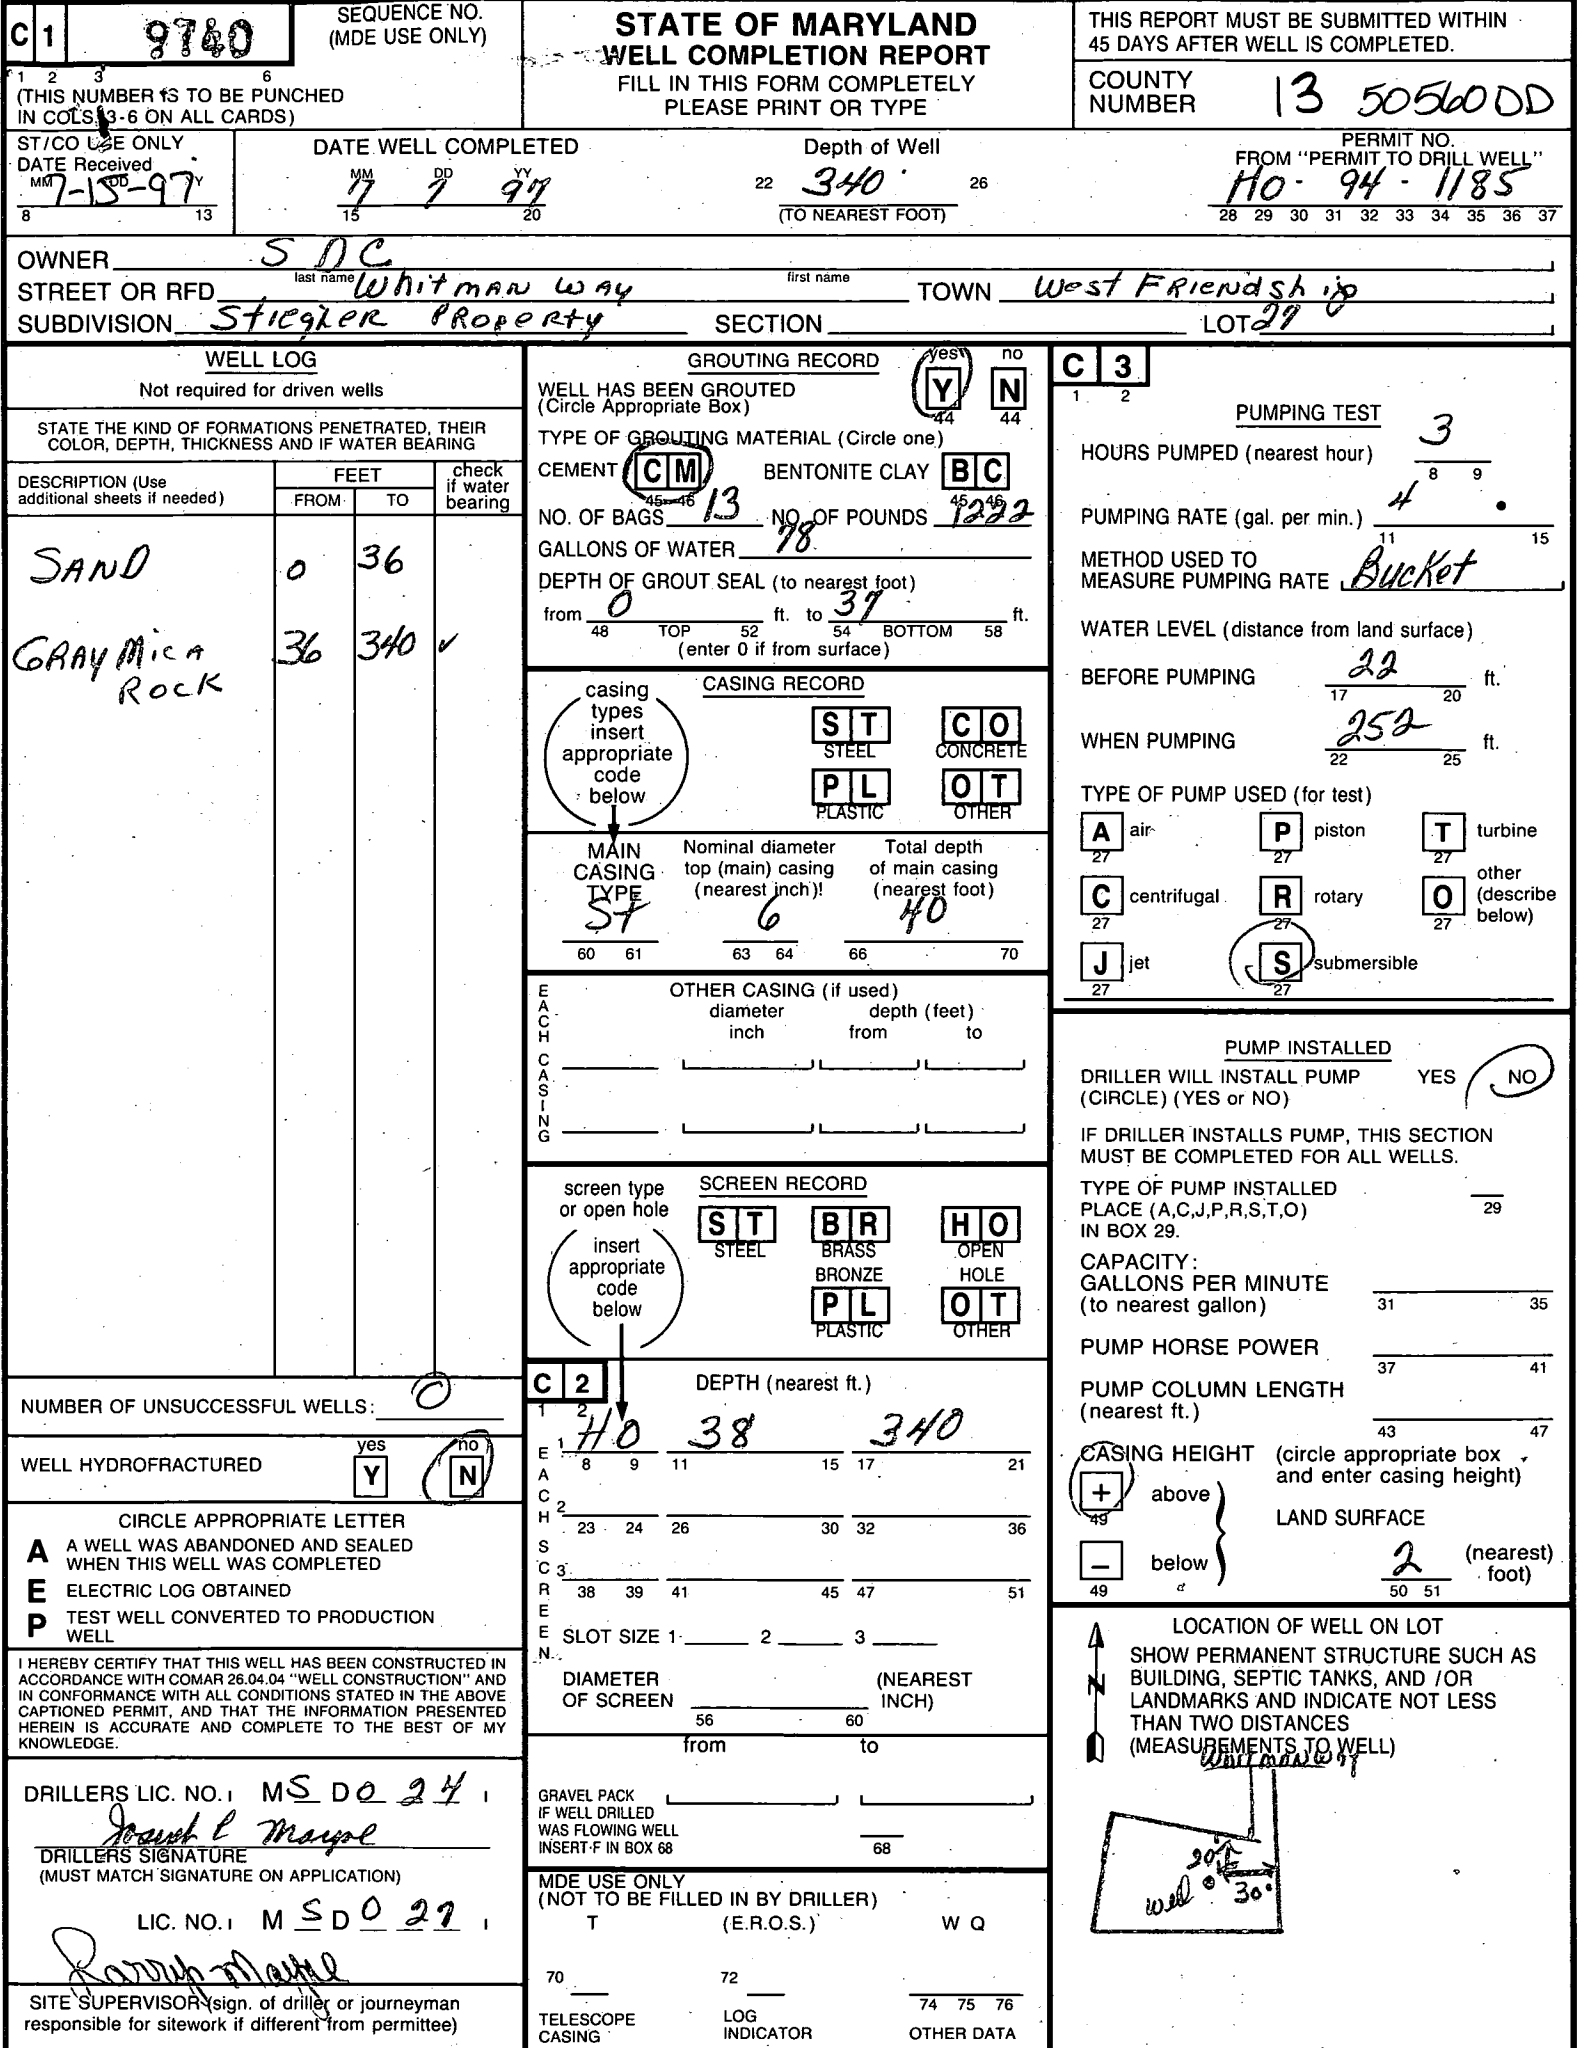 C 1 9740
SEQUENCE NO.
(MDE USE ONLY)
1 2 3 6
(THIS NUMBER IS TO BE PUNCHED
IN COLS. 3-6 ON ALL CARDS)
STATE OF MARYLAND
WELL COMPLETION REPORT
FILL IN THIS FORM COMPLETELY
PLEASE PRINT OR TYPE
THIS REPORT MUST BE SUBMITTED WITHIN
45 DAYS AFTER WELL IS COMPLETED.
COUNTY
NUMBER 13 50560DD
ST/CO USE ONLY
DATE Received
MM DD YY
7-15-97
8 13
DATE WELL COMPLETED
MM DD YY
7 7 97
15 20
Depth of Well
22 340 26
(TO NEAREST FOOT)
PERMIT NO.
FROM "PERMIT TO DRILL WELL"
HO - 94 - 1185
28 29 30 31 32 33 34 35 36 37
OWNER SDC
last name first name
STREET OR RFD Whitman Way TOWN West Friendship
SUBDIVISION Stiegler Property SECTION LOT 27
WELL LOG
Not required for driven wells
STATE THE KIND OF FORMATIONS PENETRATED, THEIR
COLOR, DEPTH, THICKNESS AND IF WATER BEARING
DESCRIPTION (Use
additional sheets if needed)
FEET
FROM TO
check
if water
bearing
SAND 0 36
GRAY MICA 36 340 ✓
ROCK
NUMBER OF UNSUCCESSFUL WELLS: 0
yes no
WELL HYDROFRACTURED Y N
CIRCLE APPROPRIATE LETTER
A A WELL WAS ABANDONED AND SEALED
WHEN THIS WELL WAS COMPLETED
E ELECTRIC LOG OBTAINED
P TEST WELL CONVERTED TO PRODUCTION
WELL
I HEREBY CERTIFY THAT THIS WELL HAS BEEN CONSTRUCTED IN
ACCORDANCE WITH COMAR 26.04.04 "WELL CONSTRUCTION" AND
IN CONFORMANCE WITH ALL CONDITIONS STATED IN THE ABOVE
CAPTIONED PERMIT, AND THAT THE INFORMATION PRESENTED
HEREIN IS ACCURATE AND COMPLETE TO THE BEST OF MY
KNOWLEDGE.
DRILLERS LIC. NO. M S D 0 24
Joseph L Mayne
DRILLERS SIGNATURE
(MUST MATCH SIGNATURE ON APPLICATION)
LIC. NO. M S D 0 27
Mayne
SITE SUPERVISOR (sign. of driller or journeyman
responsible for sitework if different from permittee)
GROUTING RECORD yes no
WELL HAS BEEN GROUTED Y N
(Circle Appropriate Box) 44 44
TYPE OF GROUTING MATERIAL (Circle one)
CEMENT C M BENTONITE CLAY B C
45 46 45 46
NO. OF BAGS 13 NO. OF POUNDS 1222
GALLONS OF WATER 78
DEPTH OF GROUT SEAL (to nearest foot)
from 0 ft. to 37 ft.
48 TOP 52 54 BOTTOM 58
(enter 0 if from surface)
casing
types
insert
appropriate
code
below
CASING RECORD
S T C O
STEEL CONCRETE
P L O T
PLASTIC OTHER
MAIN
CASING
TYPE
Nominal diameter
top (main) casing
(nearest inch)!
Total depth
of main casing
(nearest foot)
St 6 40
60 61 63 64 66 70
EACH CASING
OTHER CASING (if used)
diameter depth (feet)
inch from to
screen type
or open hole
insert
appropriate
code
below
SCREEN RECORD
S T B R H O
STEEL BRASS OPEN
BRONZE HOLE
P L O T
PLASTIC OTHER
C 2 DEPTH (nearest ft.)
1 2
EACH SCREEN
1 HO 38 340
8 9 11 15 17 21
2
23 24 26 30 32 36
3
38 39 41 45 47 51
SLOT SIZE 1 2 3
DIAMETER (NEAREST
OF SCREEN INCH)
56 60
from to
GRAVEL PACK
IF WELL DRILLED
WAS FLOWING WELL
INSERT F IN BOX 68 68
MDE USE ONLY
(NOT TO BE FILLED IN BY DRILLER)
T (E.R.O.S.) W Q
70 72
74 75 76
TELESCOPE LOG
CASING INDICATOR OTHER DATA
C 3
1 2
PUMPING TEST
HOURS PUMPED (nearest hour) 3
8 9
PUMPING RATE (gal. per min.) 4 .
11 15
METHOD USED TO
MEASURE PUMPING RATE Bucket
WATER LEVEL (distance from land surface)
BEFORE PUMPING 22 ft.
17 20
WHEN PUMPING 252 ft.
22 25
TYPE OF PUMP USED (for test)
A air P piston T turbine
27 27 27
C centrifugal R rotary O other
(describe
below)
27 27 27
J jet S submersible
27 27
PUMP INSTALLED
DRILLER WILL INSTALL PUMP YES NO
(CIRCLE) (YES or NO)
IF DRILLER INSTALLS PUMP, THIS SECTION
MUST BE COMPLETED FOR ALL WELLS.
TYPE OF PUMP INSTALLED
PLACE (A,C,J,P,R,S,T,O) 29
IN BOX 29.
CAPACITY:
GALLONS PER MINUTE
(to nearest gallon) 31 35
PUMP HORSE POWER
37 41
PUMP COLUMN LENGTH
(nearest ft.)
43 47
CASING HEIGHT (circle appropriate box
and enter casing height)
+ above
49
LAND SURFACE
− below
49
2 (nearest)
foot)
50 51
LOCATION OF WELL ON LOT
SHOW PERMANENT STRUCTURE SUCH AS
BUILDING, SEPTIC TANKS, AND /OR
LANDMARKS AND INDICATE NOT LESS
THAN TWO DISTANCES
(MEASUREMENTS TO WELL)
N
Whitman Way
20'
well 30'